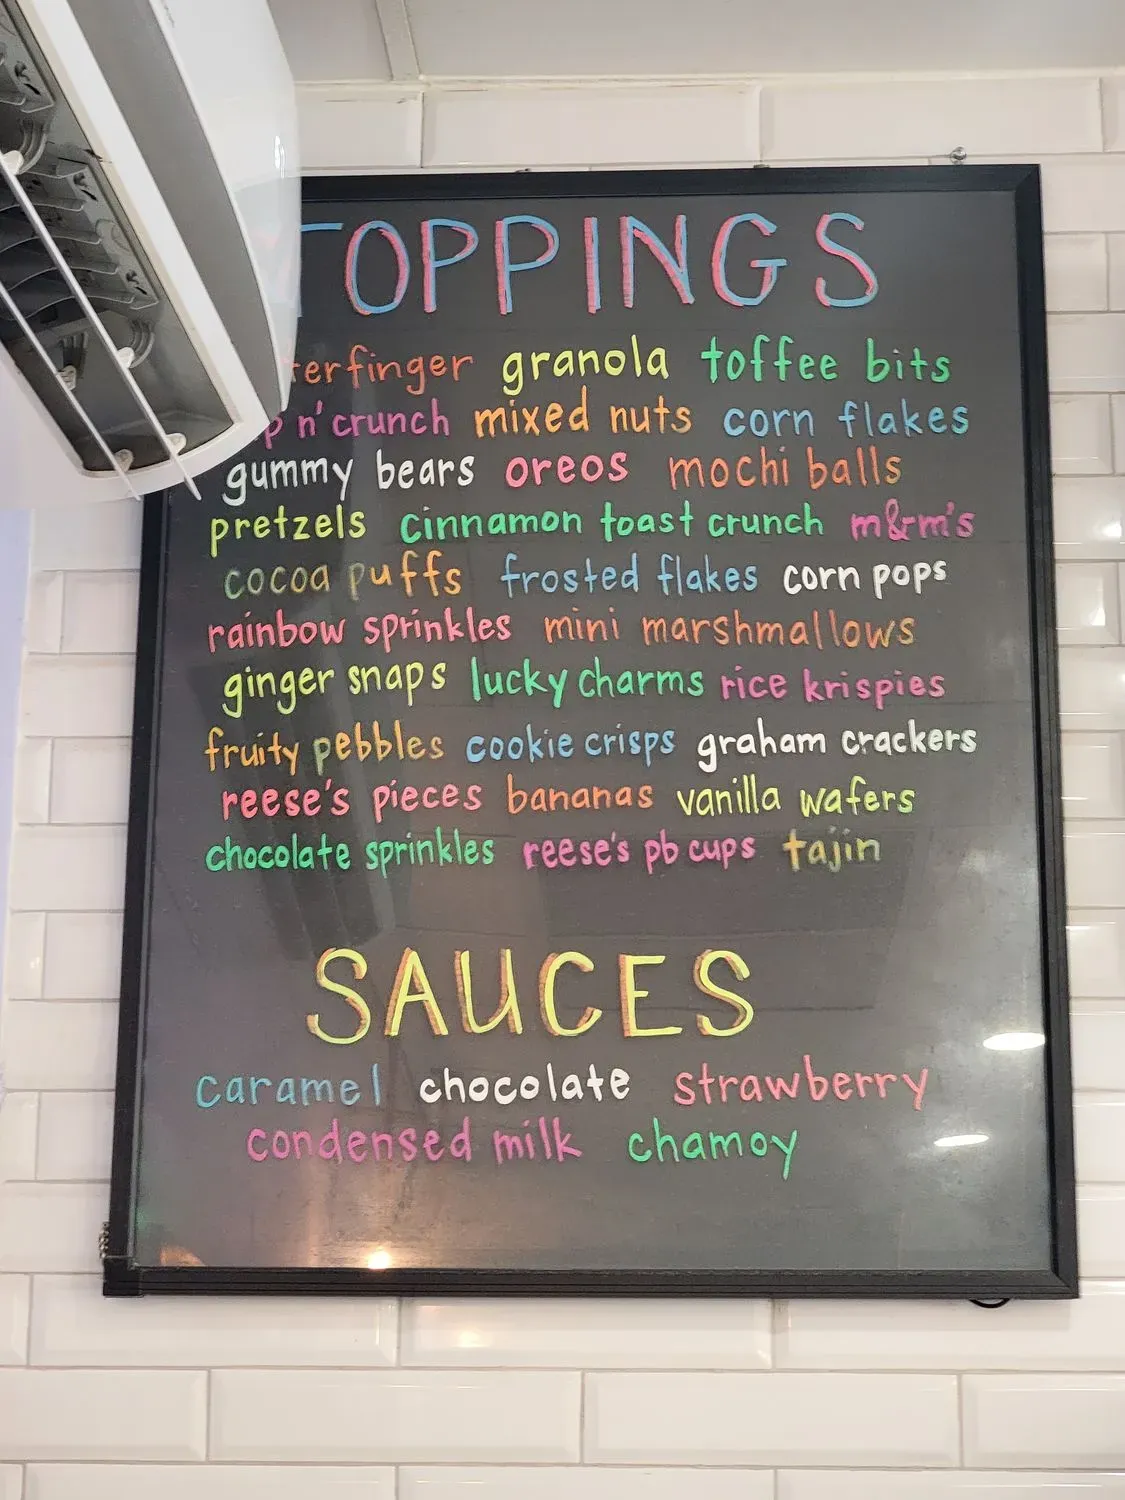 TOPPINGS
terfinger granola toffee bits
p n' crunch mixed nuts corn flakes
gummy bears oreos mochi balls
pretzels cinnamon toast crunch m&m's
cocoa puffs frosted flakes corn pops
rainbow sprinkles mini marshmallows
ginger snaps lucky charms rice krispies
fruity pebbles cookie crisps graham crackers
reese's pieces bananas vanilla wafers
chocolate sprinkles reese's pb cups tajin
SAUCES
caramel chocolate strawberry
condensed milk chamoy